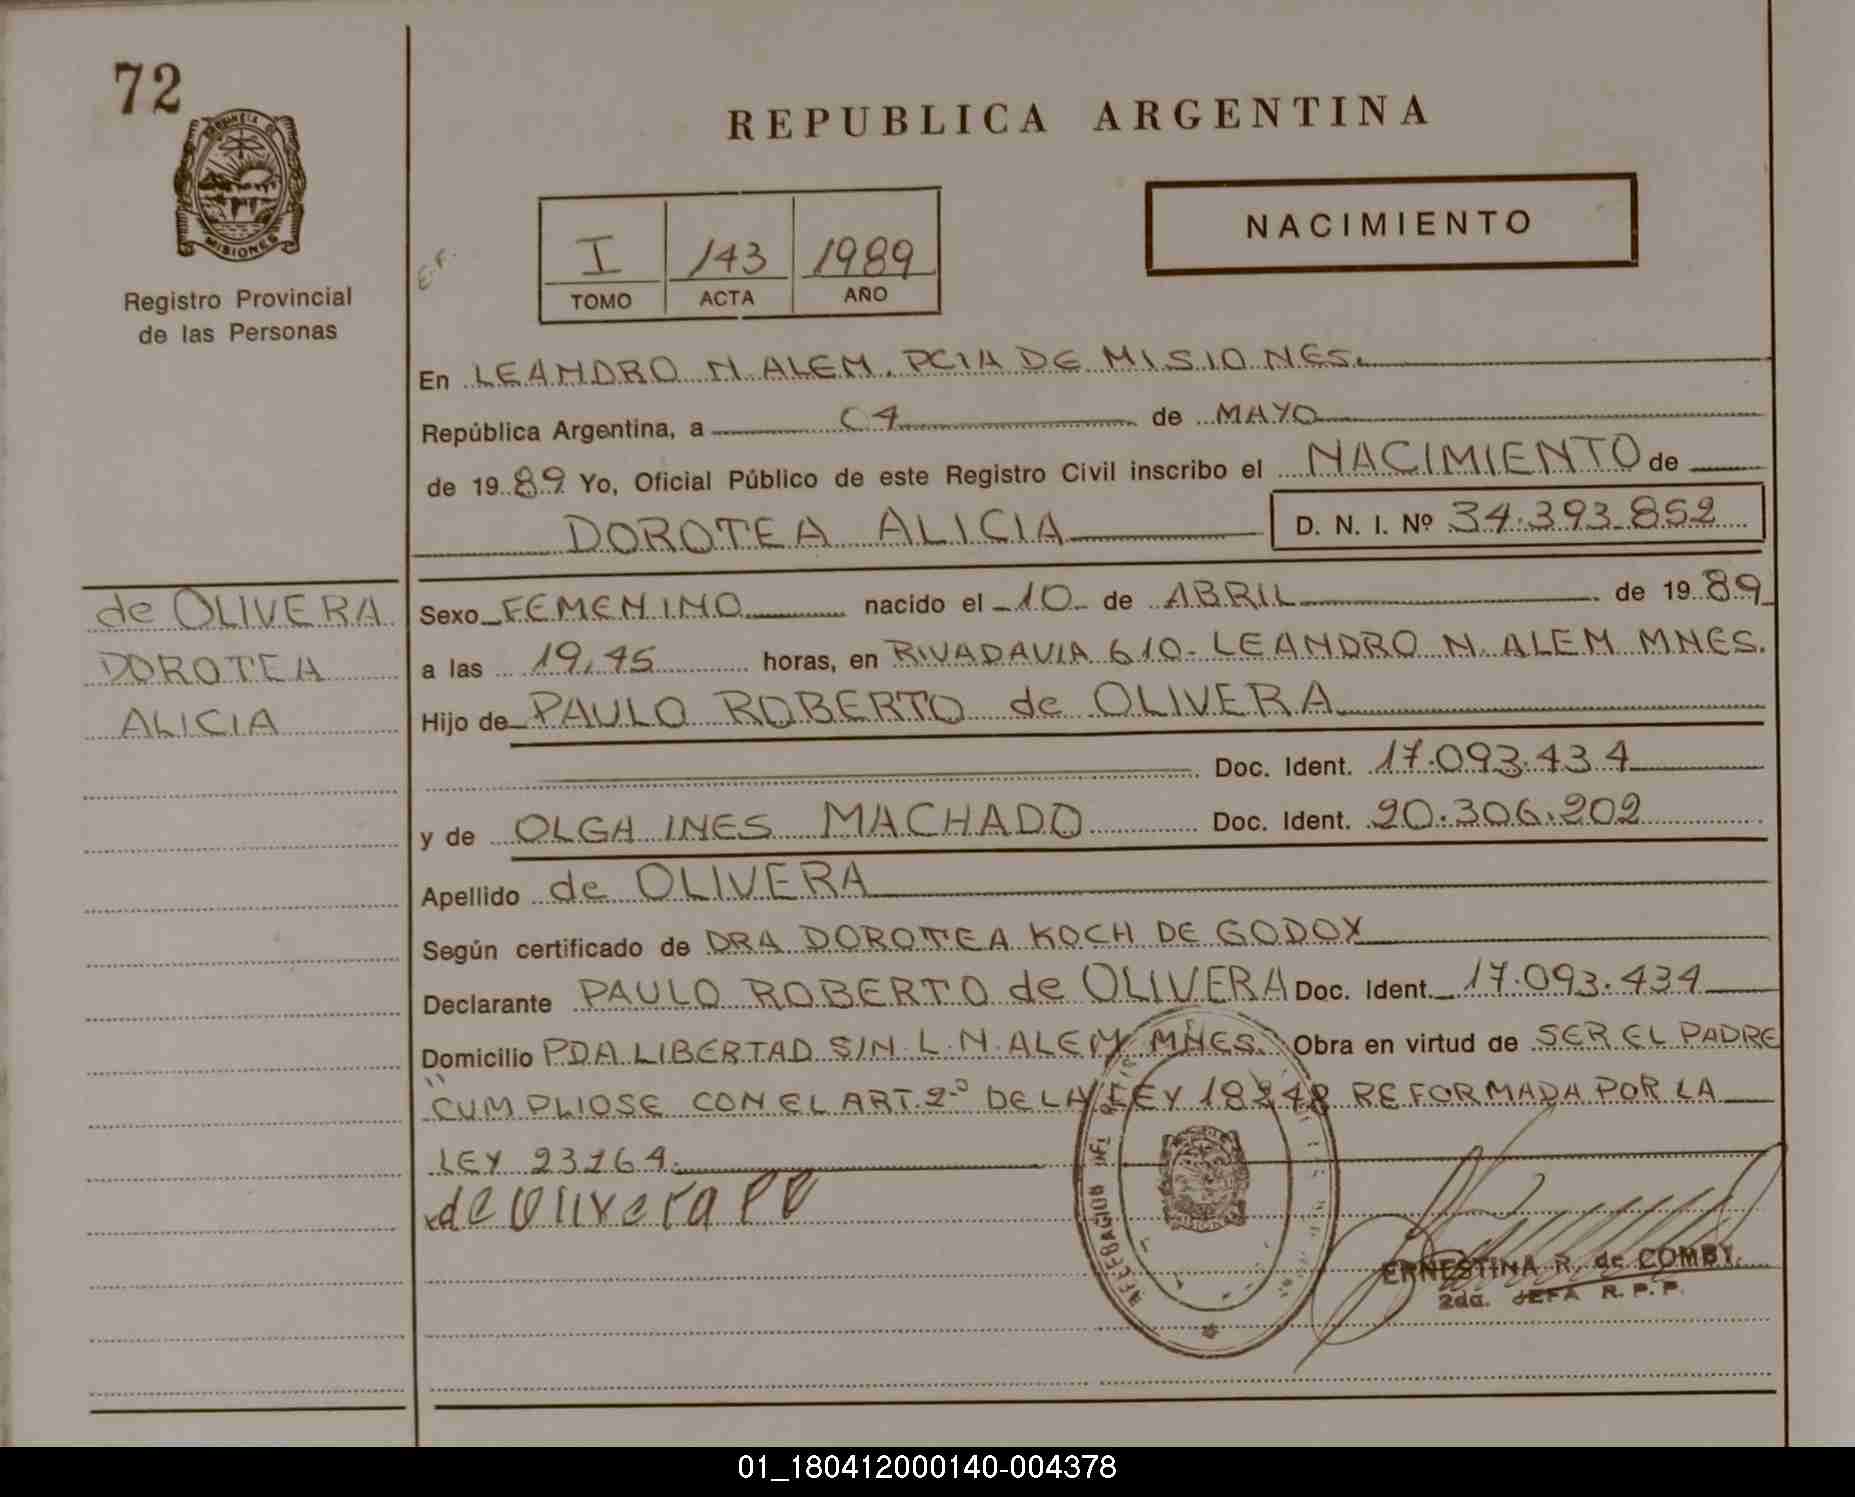 72
PROVINCIA DE
MISIONES
Registro Provincial
de las Personas
REPUBLICA ARGENTINA
NACIMIENTO
E.F.
I 143 1989
TOMO ACTA AÑO
En LEANDRO N. ALEM. PCIA DE MISIONES.
República Argentina, a 04 de MAYO
de 1989 Yo, Oficial Público de este Registro Civil inscribo el NACIMIENTO de
DOROTEA ALICIA D. N. I. Nº 34.393.852
de OLIVERA
DOROTEA
ALICIA
Sexo FEMENINO nacido el 10 de ABRIL de 1989
a las 19,45 horas, en RIVADAVIA 610- LEANDRO N. ALEM MNES.
Hijo de PAULO ROBERTO de OLIVERA
Doc. Ident. 17.093.434
y de OLGA INES MACHADO Doc. Ident. 20.306.202
Apellido de OLIVERA
Según certificado de DRA DOROTEA KOCH DE GODOY
Declarante PAULO ROBERTO de OLIVERA Doc. Ident. 17.093.434
Domicilio PDA LIBERTAD S/N L.N. ALEM MNES. Obra en virtud de SER EL PADRE
"CUMPLIOSE CON EL ART. 2º DE LA LEY 18248 REFORMADA POR LA
LEY 23264.
de Olivera PR
ERNESTINA R. de COMBY.
2da. JEFA R. P. P.
01_180412000140-004378